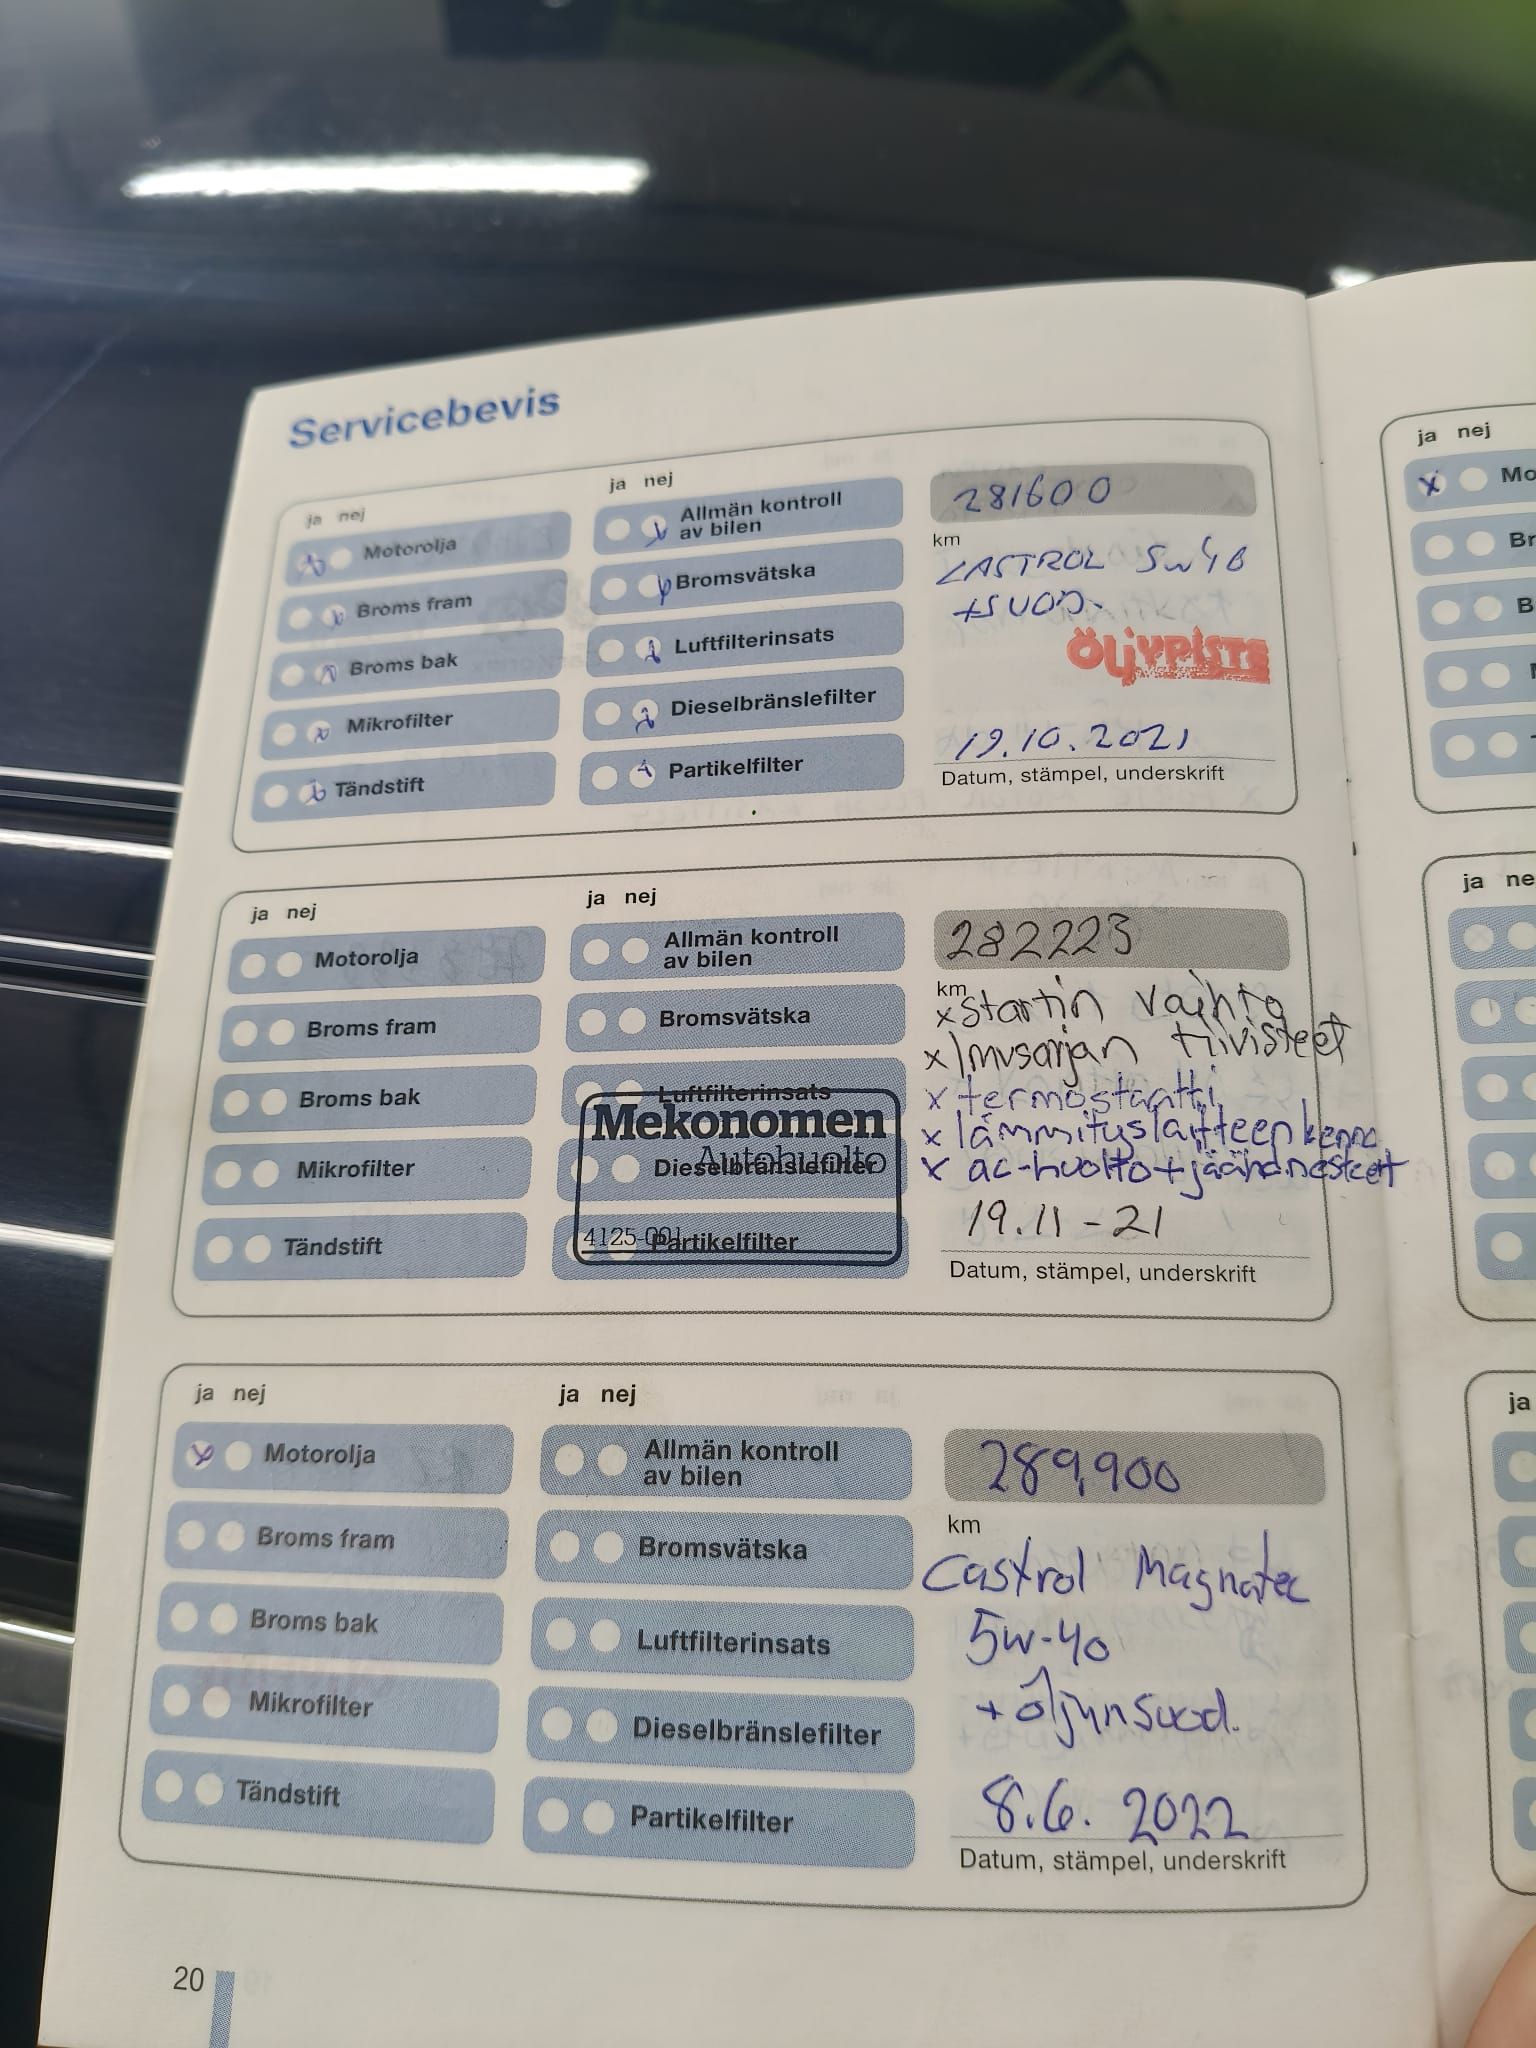 Servicebevis
ja nej
Motorolja
Broms fram
Broms bak
Mikrofilter
Tändstift
ja nej
Allmän kontroll
av bilen
Bromsvätska
Luftfilterinsats
Dieselbränslefilter
Partikelfilter
281600
km
CASTROL 5W40
+SUOD.
ÖLJYPISTE
19.10.2021
Datum, stämpel, underskrift
ja nej
Motorolja
Broms fram
Broms bak
Mikrofilter
Tändstift
ja nej
Allmän kontroll
av bilen
Bromsvätska
Luftfilterinsats
Dieselbränslefilter
Partikelfilter
Mekonomen
Autohuolto
4125-001
282223
km
x startin vaihto
x Imusarjan tiivisteet
x termostantti
x lämmityslaitteen kenno
x ac-huolto+jäähd.nesteet
19.11-21
Datum, stämpel, underskrift
ja nej
Motorolja
Broms fram
Broms bak
Mikrofilter
Tändstift
ja nej
Allmän kontroll
av bilen
Bromsvätska
Luftfilterinsats
Dieselbränslefilter
Partikelfilter
289,900
km
Castrol Magnatec
5w-40
+ öljynsuod.
8.6. 2022
Datum, stämpel, underskrift
20
ja nej
ja
ja